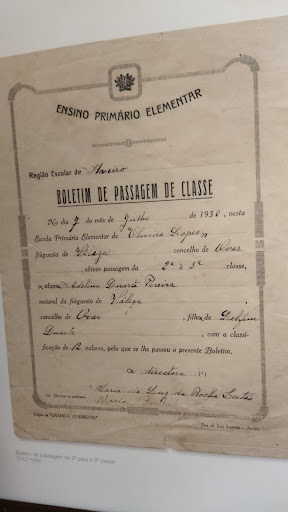 ENSINO PRIMÁRIO ELEMENTAR
Região Escolar de Aveiro
BOLETIM DE PASSAGEM DE CLASSE
No dia 7 do mês de Julho de 1930, nesta
Escola Primária Elementar de Oliveira Lopes,
fréguesia de Válega concelho de Ovar
, obteve passagem da 2ª à 3ª classe,
o aluno Adelino Duarte Pereira
natural da fréguesia de Válega
concelho de Ovar, filho de Delfim
Duarte, com a classifi-
cação de 12 valores, pelo que se lhe passou o presente Boletim.
A directora (¹)
Maria da Rocha
Maria
Boletim de passagem da 2ª para a 3ª classe
07/07/1930